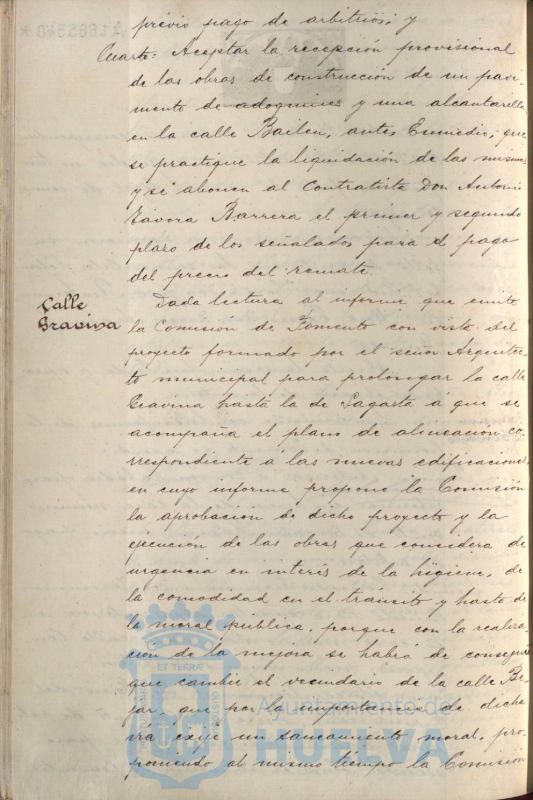 previo pago de arbitrios; y
Cuarto: Aceptar la recepción provisional
de las obras de construcción de un pavi-
mento de adoquines y una alcantarilla
en la calle Bailen, antes Enmedio; que
se practique la liquidación de las mismas
y se abonen al Contratista Don Antonio
Zavora Barrera el primer y segundo
plazo de los señalados para el pago
del precio del remate.
Calle
Gravina
Dada lectura al informe que emite
la Comisión de Fomento con vista del
proyecto formado por el señor Arquitec-
to municipal para prolongar la calle
Gravina hasta la de Sagasta á que se
acompaña el plano de alineación co-
rrespondiente á las nuevas edificaciones,
en cuyo informe propone la Comisión
la aprobación de dicho proyecto y la
ejecución de las obras que considera de
urgencia en interés de la higiene, de
la comodidad en el tránsito y hasta de
la moral pública, porque con la realiza-
ción de la mejora se habrá de conseguir
que cambie el vecindario de la calle Be-
jar que por la importancia de dicha
vía exije un saneamiento moral, pro-
poniendo al mismo tiempo la Comisión
Ayuntamiento de
HUELVA